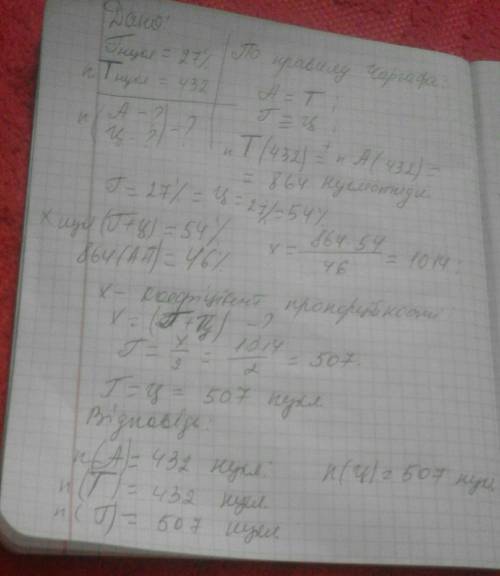 Дано:
Гнукл = 27%
n Тнукл = 432
n (А - ?
Ц - ?) - ?
По правилу Чаргафа:
А = Т;
Г ≡ Ц;
n Т(432) + n А(432) =
= 864 нуклеотиди
Г = 27% = Ц = 27% = 54%
х нукл (Г+Ц) = 54%
864 (АТ) = 46%
х = 864·54/46 = 1014;
х - коефіцієнт пропорційності
х = (Г+Ц) - ?
Г = х/2 = 1014/2 = 507.
Г = Ц = 507 нукл
Відповідь:
n(А) = 432 нукл.
n(Т) = 432 нукл.
n(Г) = 507 нукл
n(Ц) = 507 нукл